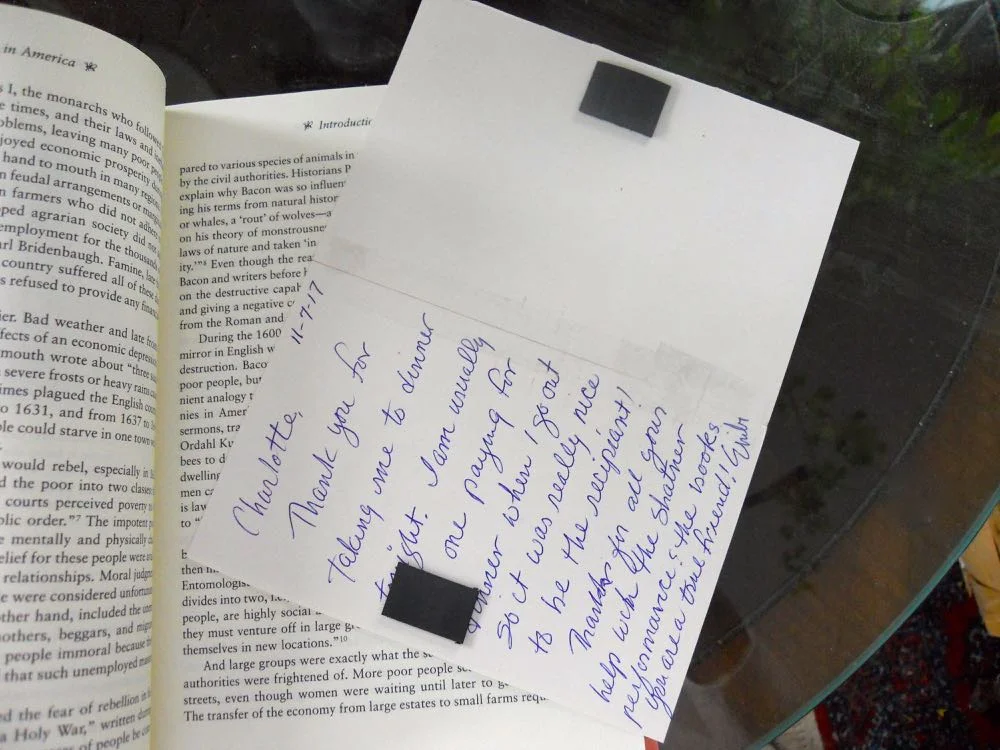 in America
s I, the monarchs who followe
e times, and their laws and
oblems, leaving many poor
joyed economic prosperity
hand to mouth in many
n feudal arrangements or
n farmers who did not
ped agrarian society did
employment for the thousand
arl Bridenbaugh. Famine,
country suffered all of these
s refused to provide any
ier. Bad weather and late
fects of an economic
mouth wrote about "three
severe frosts or heavy rains
imes plagued the English
to 1631, and from 1637 to
ple could starve in one town
would rebel, especially in
d the poor into two classes
courts perceived poverty
lic order."7 The impotent
e mentally and physically
elief for these people were
relationships. Moral
e were considered
other hand, included the
mothers, beggars, and
people immoral because
that such unemployed
d the fear of rebellion in
a Holy War," written
Introductio
pared to various species of animals in
by the civil authorities. Historians P
explain why Bacon was so influen
ing his terms from natural histor
or whales, a 'rout' of wolves—a
on his theory of monstrousne
laws of nature and taken 'in
ity.'"8 Even though the rea
Bacon and writers before
on the destructive capab
and giving a negative
from the Roman and
During the 1600
mirror in English w
destruction. Baco
poor people, but
nient analogy t
nies in Amer
sermons, tra
Ordahl Ku
bees to d
dwelling
men ca
is law
to "
then
Entomologis
divides into two,
people, are highly social
they must venture off in large
themselves in new locations."10
And large groups were exactly what the
authorities were frightened of. More poor people
streets, even though women were waiting until later to
The transfer of the economy from large estates to small farms requ
11-7-17
Charlotte,
Thank you for
taking me to dinner
tonight. I am usually
one paying for
dinner when I go out
so it was really nice
to be the recipient!
Thanks for all your
help with the Shatner
performance; the books
you are a true friend!